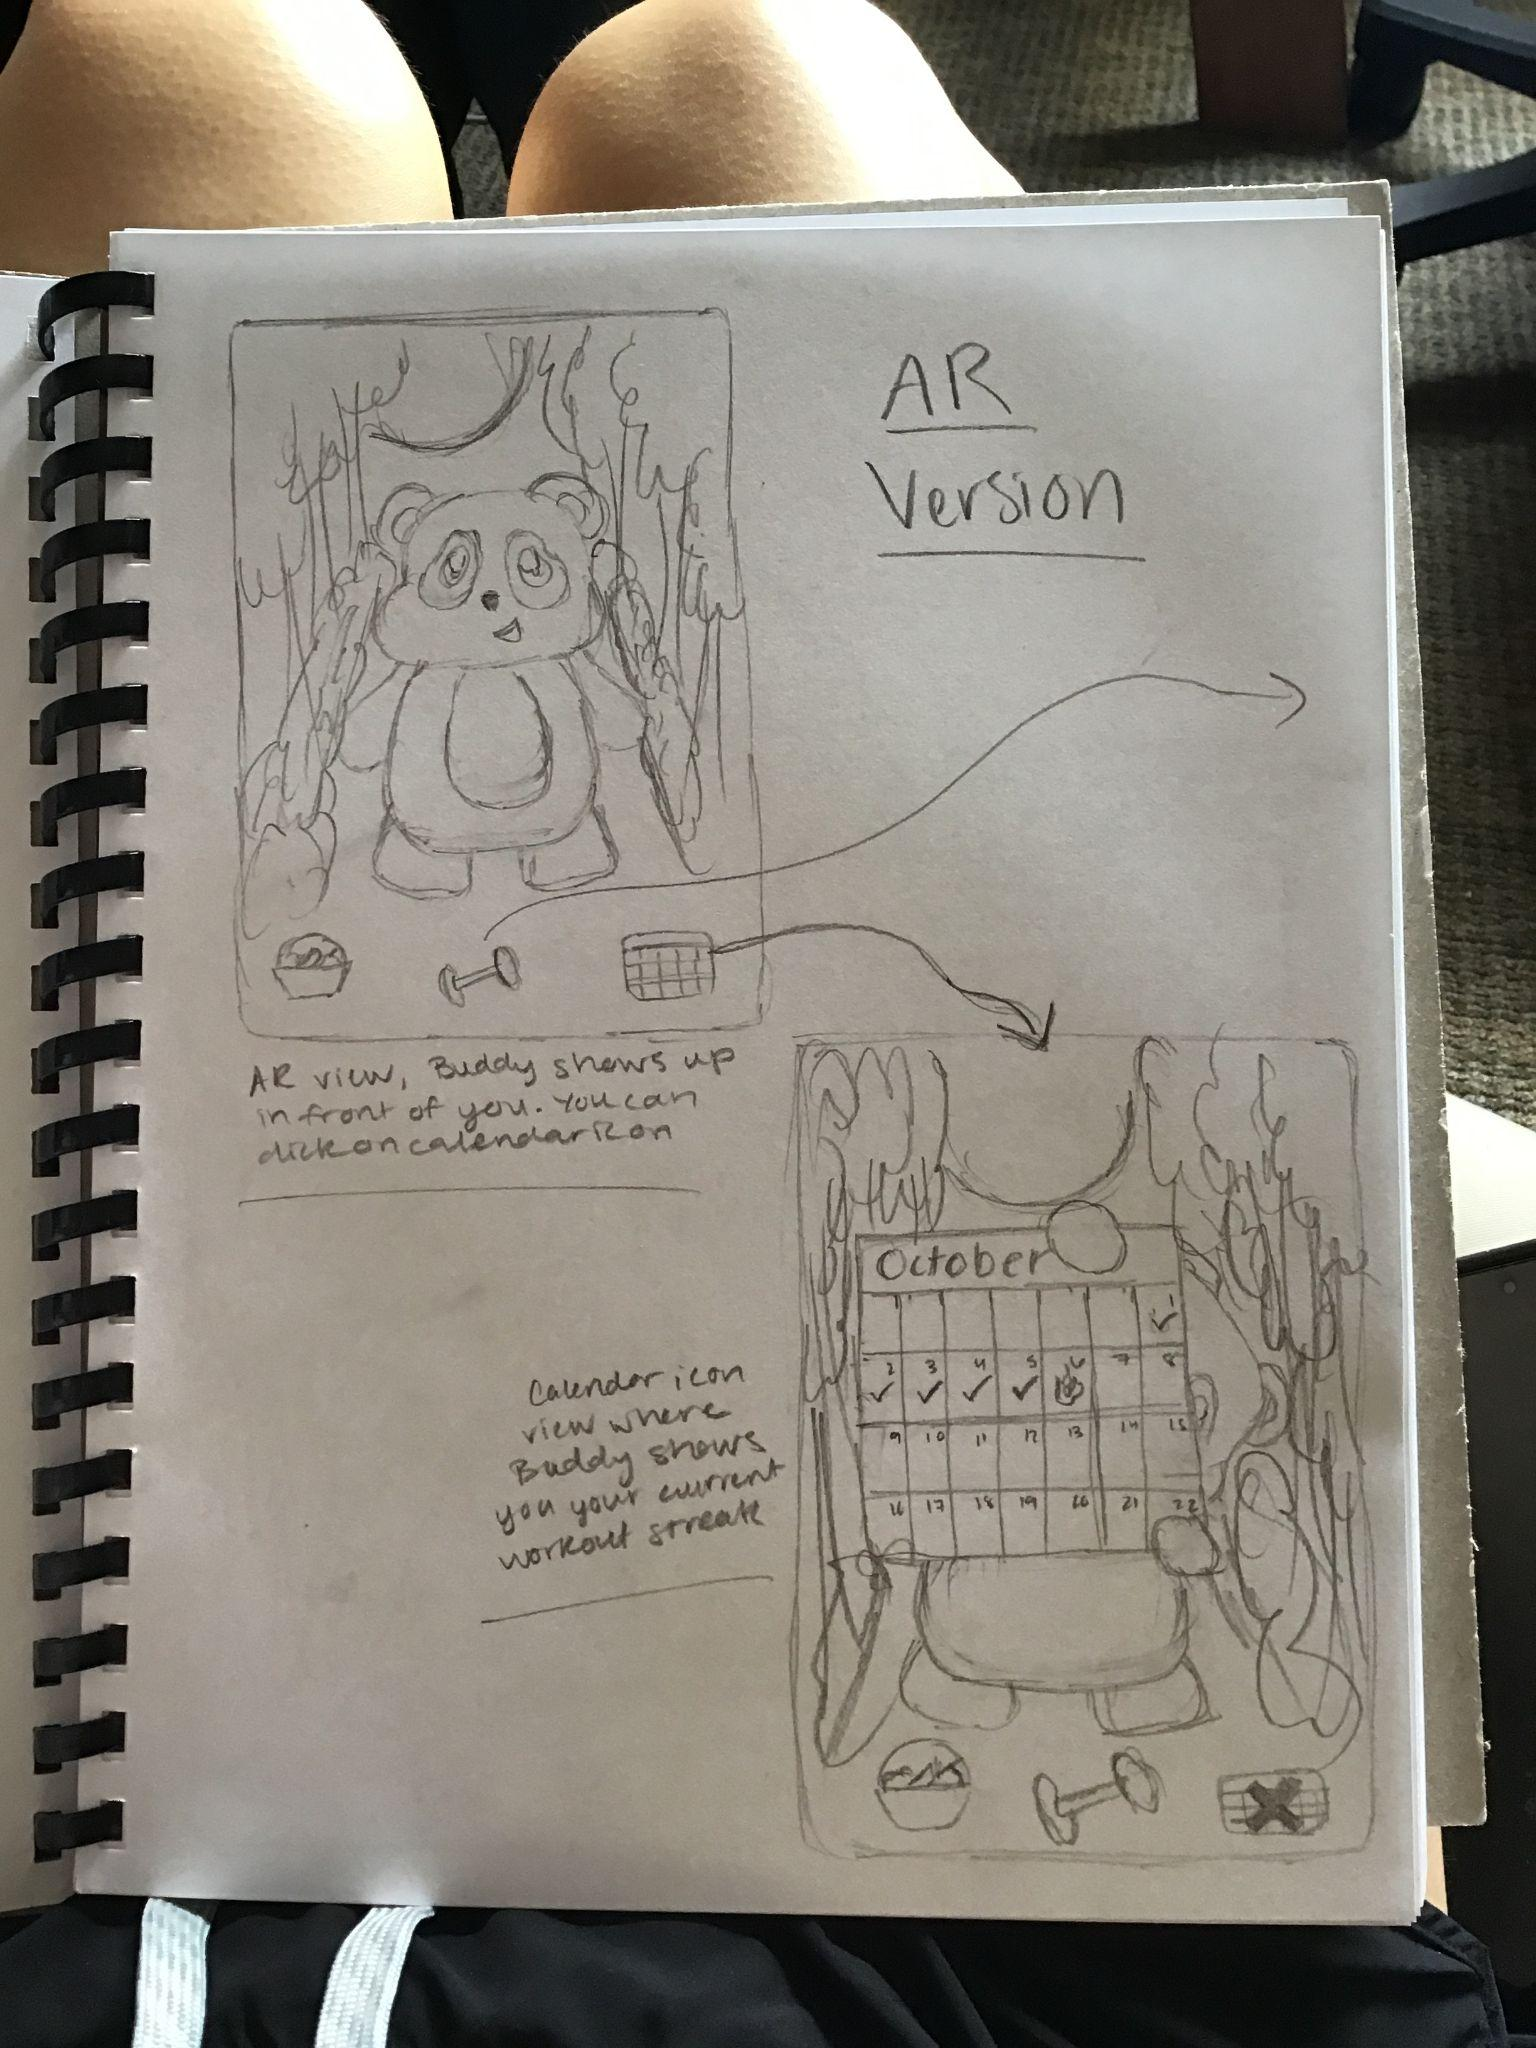 AR
Version
AR view, Buddy shows up
in front of you. You can
click on calendar icon
October
1
2 3 4 5 6 7 8
9 10 11 12 13 14 15
16 17 18 19 20 21 22
Calendar icon
view where
Buddy shows
you your current
workout streak